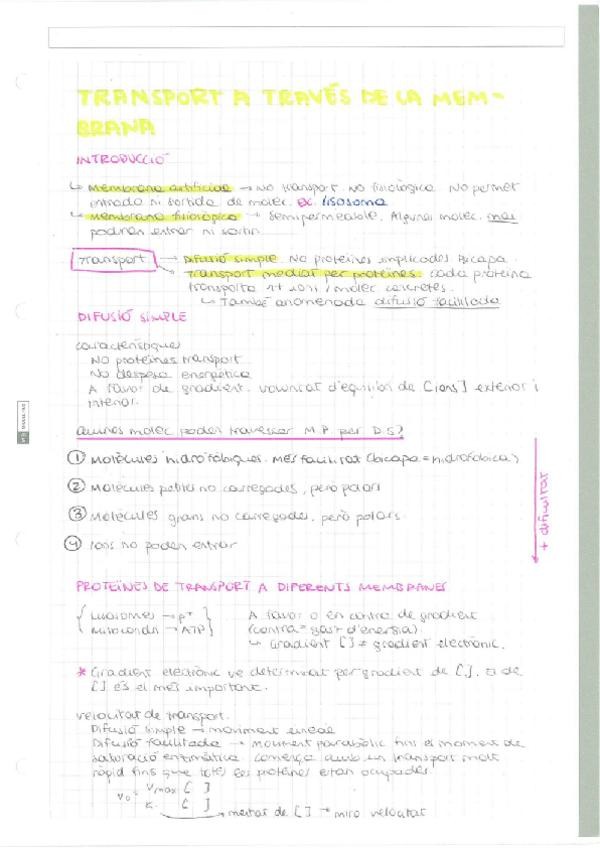 TRANSPORT A TRAVÉS DE LA MEM-
BRANA
INTRODUCCIÓ
↳ Membrana artificial → No transport. No fisiològica. No permet
entrada ni sortida de molèc. ex. liposoma
↳ Membrana fisiològica → Semipermeable. Algunes molèc.
podran entrar ni sortir.
Transport → Difusió simple. No proteïnes implicades. Bicapa.
Transport mediat per proteïnes. Cada proteïna
transporta ions / molèc concretes.
↳ També anomenada difusió facilitada
DIFUSIÓ SIMPLE
Característiques
No proteïnes transport
No despesa energètica
A favor de gradient. Voluntat d'equilibri de [ions] exterior i
interior.
Quines molèc poden travessar M.P. per D.S?
① Molècules hidrofòbiques. Més facilitat (bicapa = hidrofòbica)
② Molècules petites no carregades, però polars
③ Molècules grans no carregades, però polars
④ Ions no poden entrar
+ dificultat
PROTEÏNES DE TRANSPORT A DIFERENTS MEMBRANES
{ Lisosomes → p+ } A favor o en contra de gradient
{ Mitocondri → ATP } (contra = gast d'energia)
↳ Gradient [ ] ≠ gradient electrònic.
* Gradient electrònic ve determinat per gradient de [ ]. El de
[ ] és el més important.
Velocitat de transport.
Difusió simple → moviment lineal
Difusió facilitada → moviment parabòlic fins el moment de
saturació enzimàtica. Comença amb un transport molt
ràpid fins que totes les proteïnes estan ocupades.
V₀ = Vmax [ ]
K [ ]
→ meitat de [ ] → miro velocitat